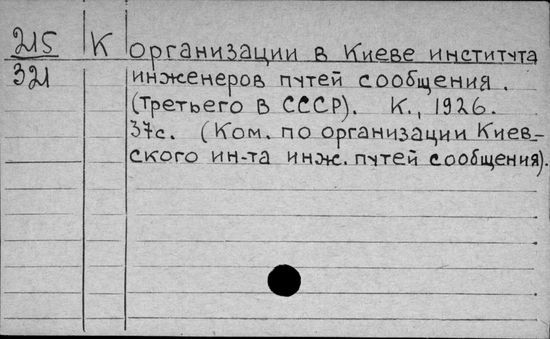 215 К организации в Киеве института
321 инженеров путей сообщения.
(третьего в СССР). К., 1926.
37с. (Ком. по организации Киев-
ского ин-та инж. путей сообщения).